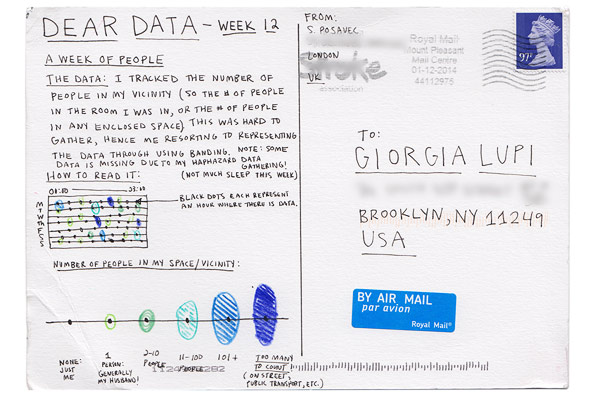 DEAR DATA - WEEK 12
A WEEK OF PEOPLE
THE DATA: I TRACKED THE NUMBER OF
PEOPLE IN MY VICINITY (SO THE # OF PEOPLE
IN THE ROOM I WAS IN, OR THE # OF PEOPLE
IN ANY ENCLOSED SPACE) THIS WAS HARD TO
GATHER, HENCE ME RESORTING TO REPRESENTING
THE DATA THROUGH USING BANDING. NOTE: SOME
DATA IS MISSING DUE TO MY HAPHAZARD DATA
GATHERING!
(NOT MUCH SLEEP THIS WEEK)
HOW TO READ IT:
M
T
W
T
F
S
S
BLACK DOTS EACH REPRESENT
AN HOUR WHERE THERE IS DATA.
NUMBER OF PEOPLE IN MY SPACE/VICINITY:
NONE:
JUST
ME
1
PERSON:
GENERALLY
MY HUSBAND!
2-10
PEOPLE
11-100
PEOPLE
101+
TOO MANY
TO COUNT
(ON STREET,
PUBLIC TRANSPORT, ETC.)
FROM:
S. POSAVEC
LONDON
UK
Royal Mail
Mount Pleasant
Mail Centre
01-12-2014
44112975
97P
TO:
GIORGIA LUPI
BROOKLYN, NY 11249
USA
BY AIR MAIL
par avion
Royal Mail